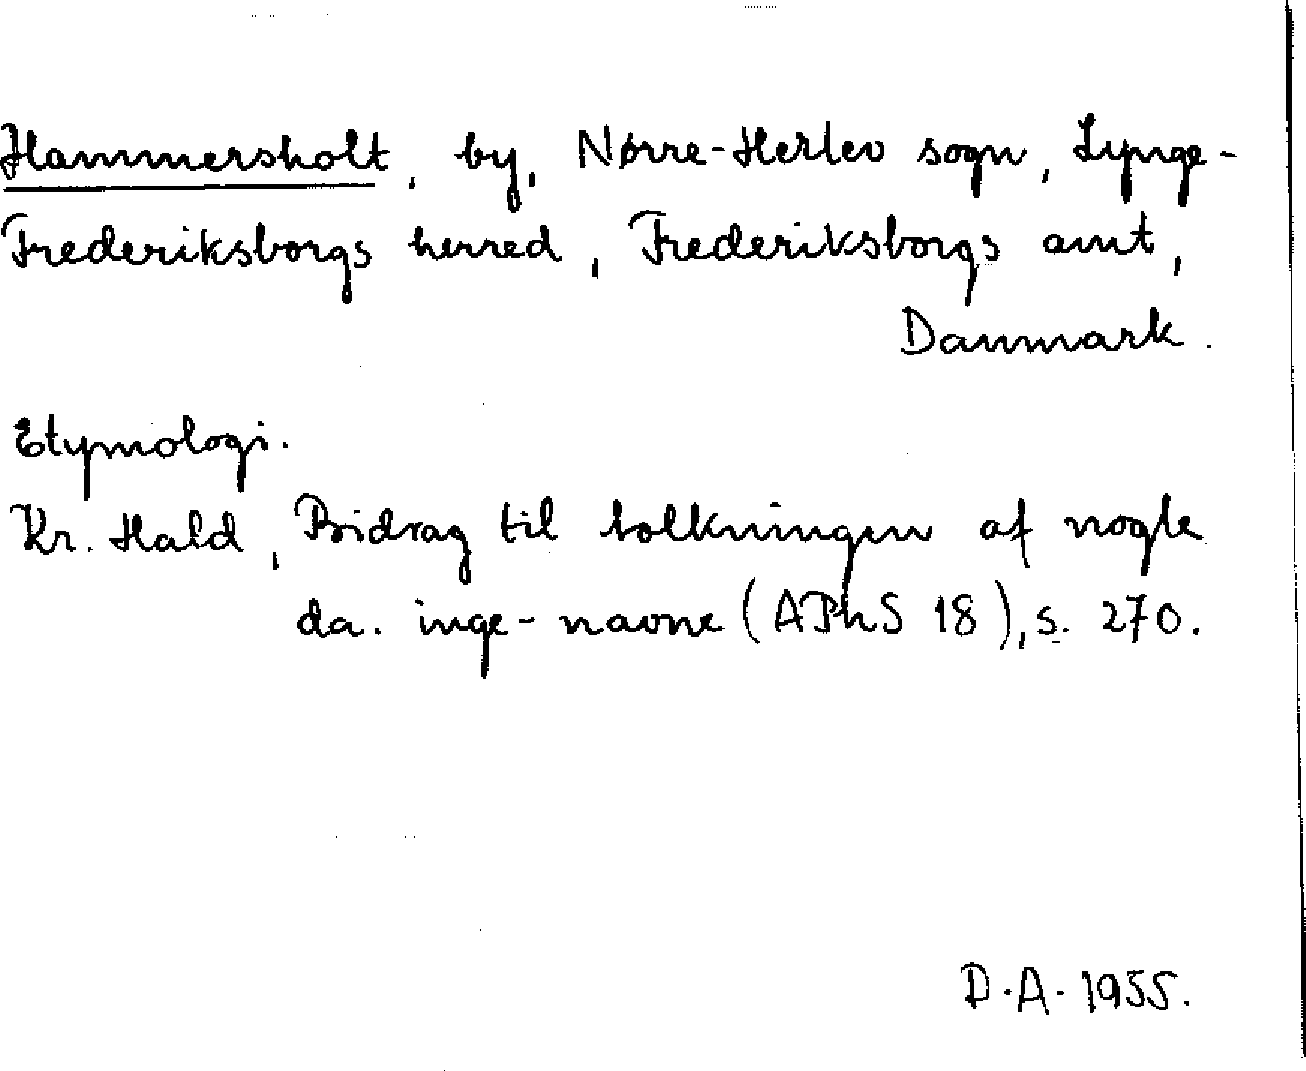 Hammersholt, by, Nørre-Herlev sogn, Lynge-
Frederiksborgs herred, Frederiksborgs amt,
Danmark.
Etymologi.
Kr. Hald, Bidrag til tolkningen af nogle
da. inge-navne (APhS 18), s. 270.
D.A. 1955.